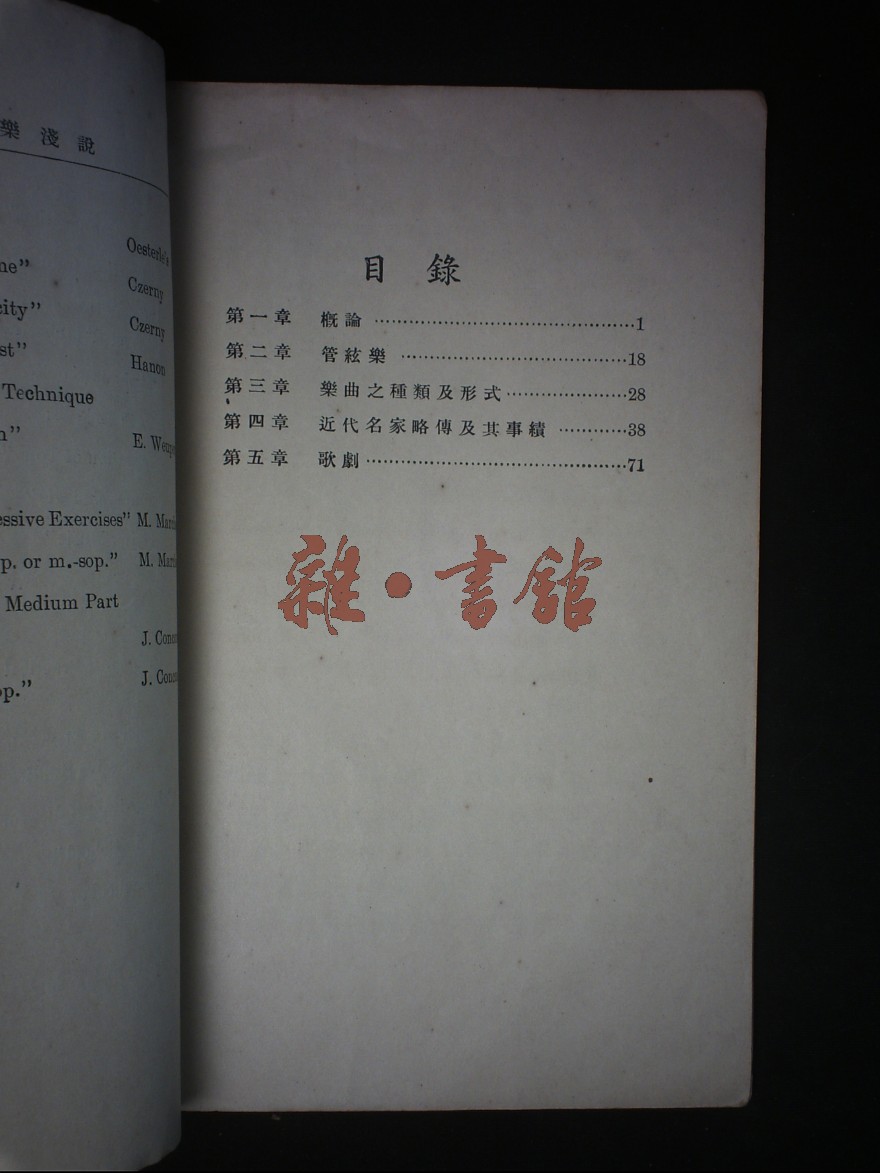 樂淺說
Oesterle's
ne”
Czerny
city”
Czerny
st”
Hanon
Technique
n”
E.
essive Exercises” M.
p. or m.-sop.” M.
Medium Part
J.
J.
op.”
目錄
第一章 概論 …………………………………1
第二章 管絃樂 ……………………………18
第三章 樂曲之種類及形式………………28
第四章 近代名家略傳及其事績 …………38
第五章 歌劇…………………………………71
雜·書館